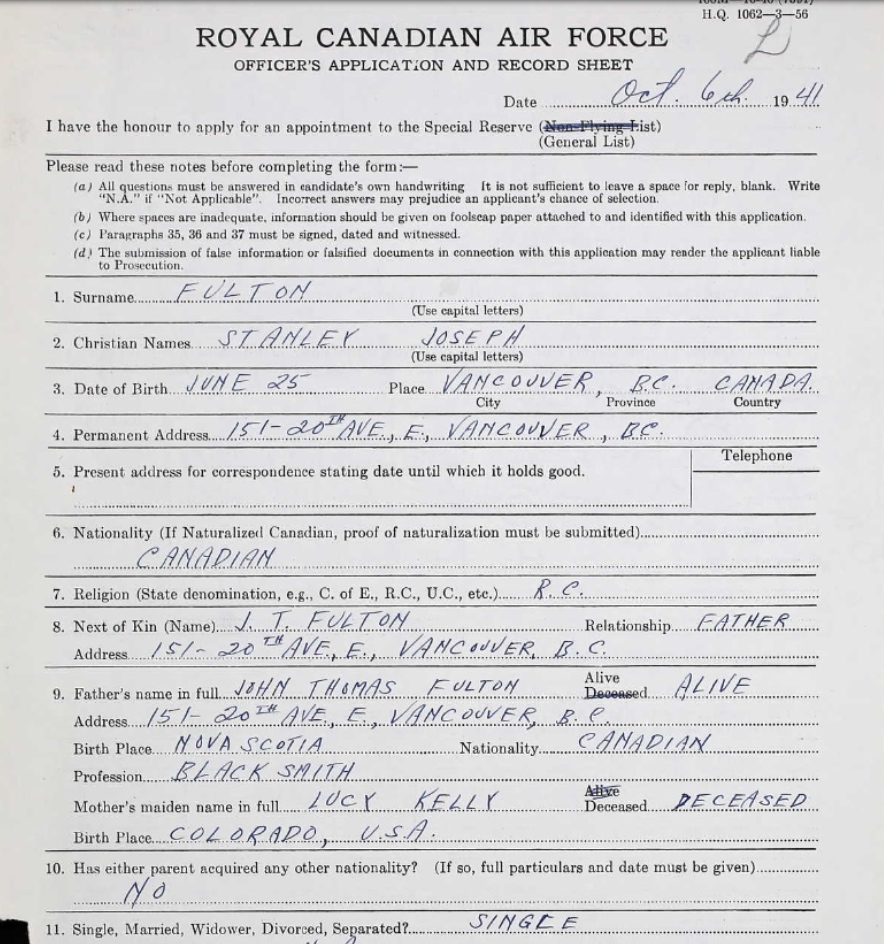 H.Q. 1062—3—56
L
ROYAL CANADIAN AIR FORCE
OFFICER'S APPLICATION AND RECORD SHEET
Date Oct. 6th. 1941
I have the honour to apply for an appointment to the Special Reserve (Non-Flying List)
(General List)
Please read these notes before completing the form:—
(a) All questions must be answered in candidate's own handwriting It is not sufficient to leave a space for reply, blank. Write
"N.A." if "Not Applicable". Incorrect answers may prejudice an applicant's chance of selection.
(b) Where spaces are inadequate, information should be given on foolscap paper attached to and identified with this application.
(c) Paragraphs 35, 36 and 37 must be signed, dated and witnessed.
(d) The submission of false information or falsified documents in connection with this application may render the applicant liable
to Prosecution.
1. Surname FULTON
(Use capital letters)
2. Christian Names STANLEY JOSEPH
(Use capital letters)
3. Date of Birth JUNE 25 Place VANCOUVER, B.C. CANADA.
City Province Country
4. Permanent Address 151-20TH AVE., E., VANCOUVER, B.C.
Telephone
5. Present address for correspondence stating date until which it holds good.
6. Nationality (If Naturalized Canadian, proof of naturalization must be submitted)
CANADIAN
7. Religion (State denomination, e.g., C. of E., R.C., U.C., etc.) R.C.
8. Next of Kin (Name) J. T. FULTON Relationship FATHER
Address 151-20TH AVE., E., VANCOUVER, B.C.
9. Father's name in full JOHN THOMAS FULTON Alive Deceased ALIVE
Address 151-20TH AVE., E., VANCOUVER, B.C.
Birth Place NOVA SCOTIA Nationality CANADIAN
Profession BLACK SMITH
Mother's maiden name in full LUCY KELLY Alive Deceased DECEASED
Birth Place COLORADO, U.S.A.
10. Has either parent acquired any other nationality? (If so, full particulars and date must be given)
NO
11. Single, Married, Widower, Divorced, Separated? SINGLE